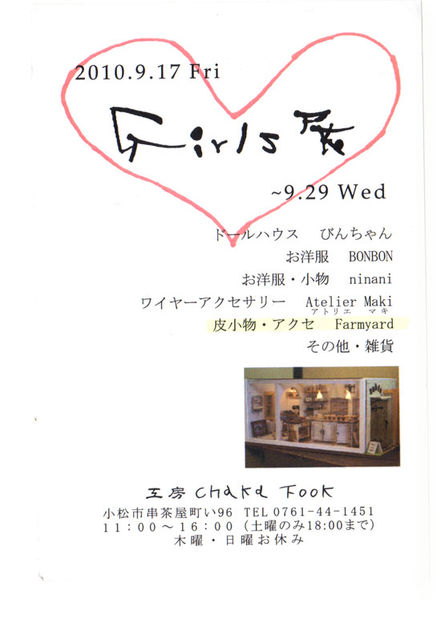 2010.9.17 Fri
Girls展
~9.29 Wed
ドールハウス びんちゃん
お洋服 BONBON
お洋服・小物 ninani
ワイヤーアクセサリー Atelier Maki
アトリエ マキ
皮小物・アクセ Farmyard
その他・雑貨
工房 chaka Fook
小松市串茶屋町い96 TEL 0761-44-1451
11：00～16：00（土曜のみ18:00まで）
木曜・日曜お休み